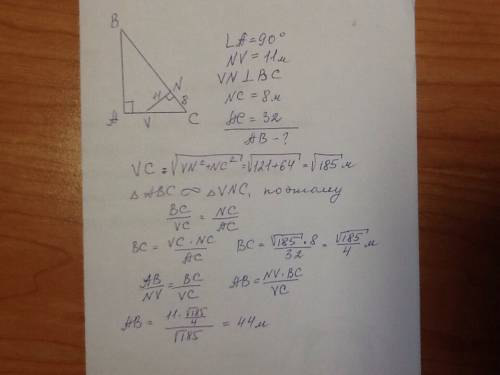 B
∠A = 90°
NV = 11 м
VN ⊥ BC
NC = 8 м
AC = 32
AB - ?
11 N 8
A V C
VC = √VN² + NC² = √121 + 64 = √185 м
△ABC ∞ △VNC, поэтому
BC/VC = NC/AC
BC = VC · NC/AC BC = √185 · 8/32 = √185/4 м
AB/NV = BC/VC AB = NV · BC/VC
AB = 11 · √185/4/√185 = 44 м